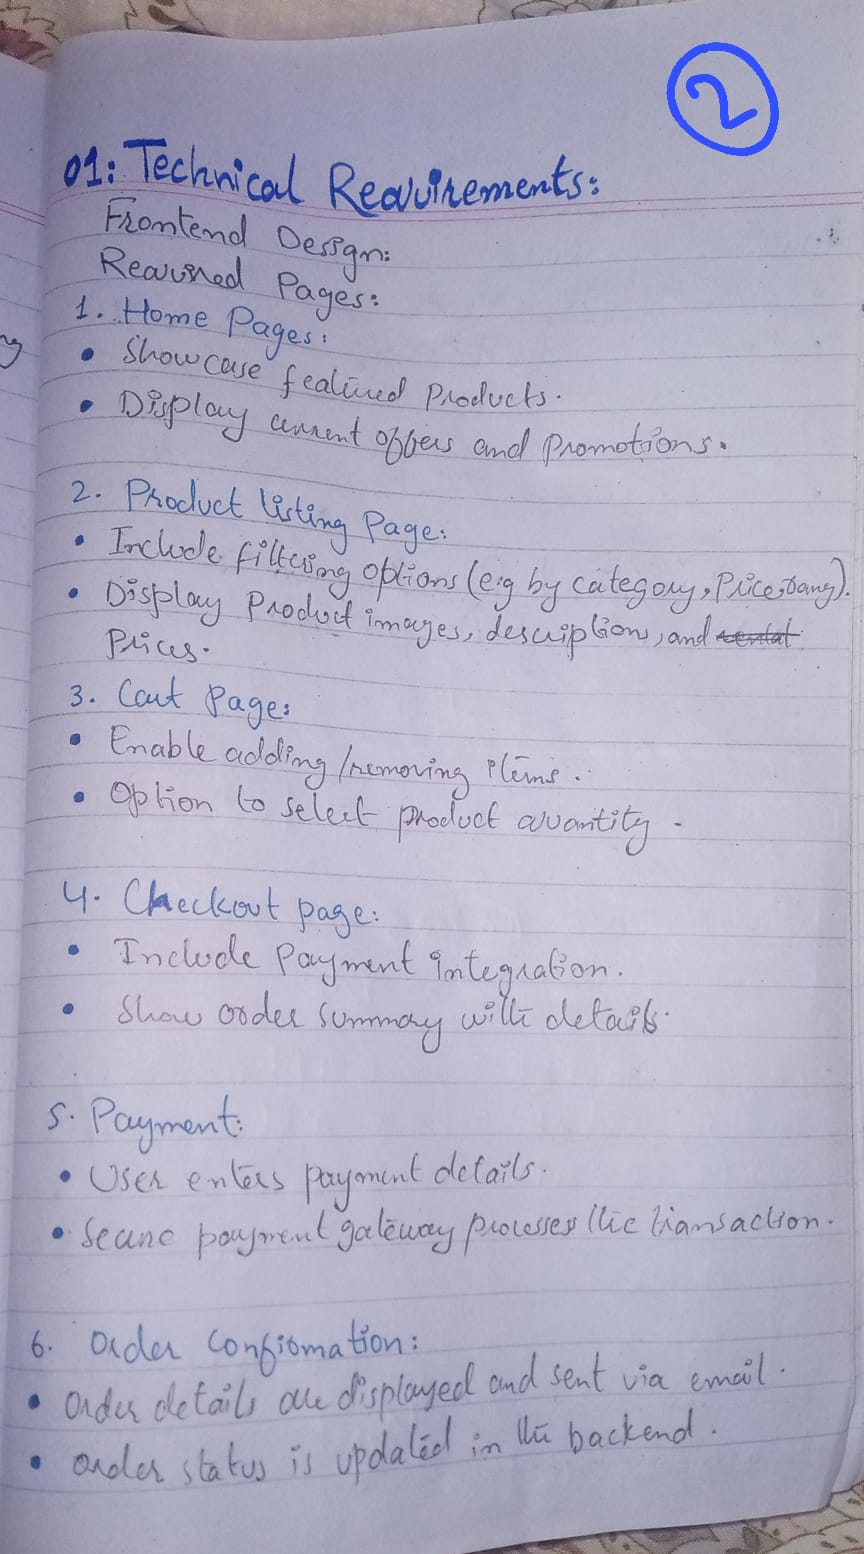 2
01: Technical Requirements:
Frontend Design:
Required Pages:
1. Home Pages:
• Showcase featured Products.
• Display current offers and promotions.
2. Product listing Page:
• Include filtering options (e.g by category, Price,
• Display Product images, description, and
Prices.
3. Cart Page:
• Enable adding/removing items.
• Option to select product quantity.
4. Checkout page:
• Include Payment integration.
• Show order summary with details.
5. Payment:
• User enters payment details.
• Secure payment gateway processes the transaction.
6. Order Confirmation:
• Order details are displayed and sent via email.
• order status is updated in the backend.